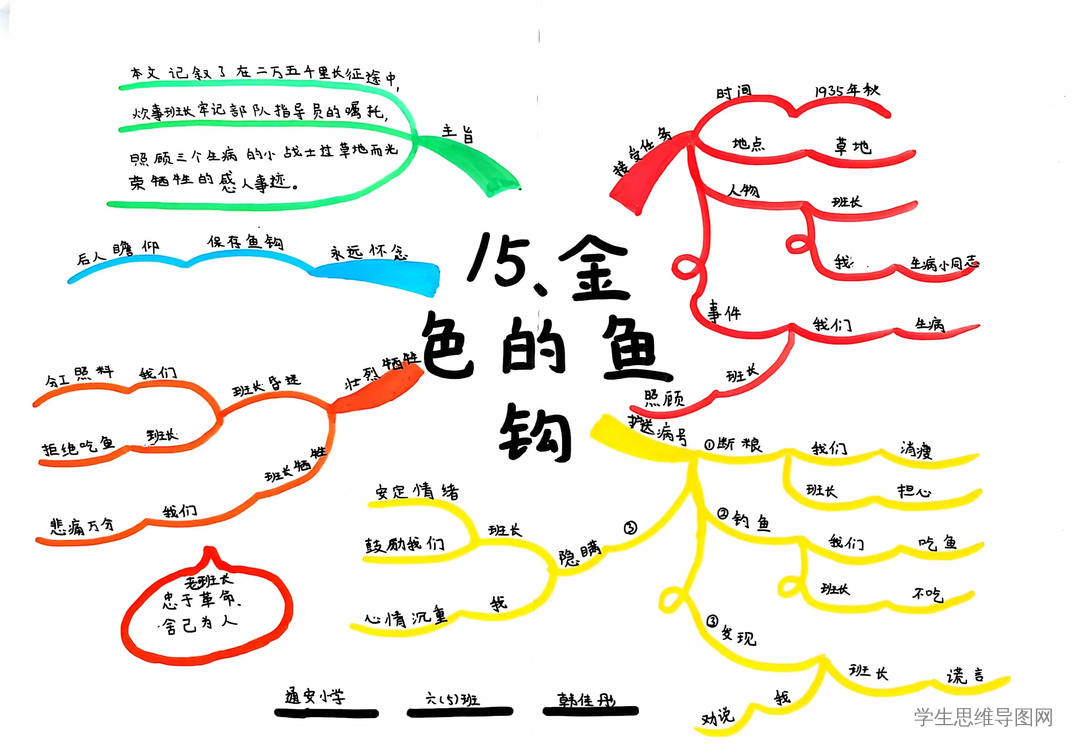 15、金
色的鱼
钩
接受任务
时间
1935年秋
地点
草地
人物
班长
我
生病小同志
事件
我们
生病
班长
照顾
护送病号
①断粮
我们
消瘦
班长
担心
②钓鱼
我们
吃鱼
班长
不吃
③发现
班长
谎言
我
劝说
③
隐瞒
班长
安定情绪
鼓励我们
我
心情沉重
壮烈牺牲
班长昏迷
我们
分工照料
班长
拒绝吃鱼
班长牺牲
我们
悲痛万分
永远怀念
保存鱼钩
后人瞻仰
主旨
本文记叙了在二万五千里长征途中,
炊事班长牢记部队指导员的嘱托,
照顾三个生病的小战士过草地而光
荣牺牲的感人事迹。
老班长
忠于革命、
舍己为人
通安小学
六(5)班
韩佳彤
学生思维导图网